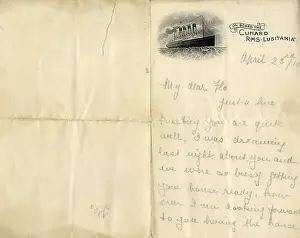 ON BOARD THE
CUNARD
R.M.S. "LUSITANIA"
April 23rd/10
My dear Flo
Just a line
trusting you are quite
well, I was dreaming
last night about you and
we were so busy getting
your house ready, how
ever I am looking forward
to you having the house